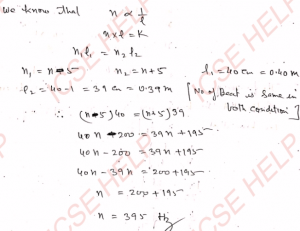 We know that n ∝ 1/l
n × l = K
n₁l₁ = n₂l₂
n₁ = n - 5 n₂ = n + 5 l₁ = 40 cm = 0.40 m
l₂ = 40 - 1 = 39 cm = 0.39 m [No. of Beat is same in both condition]
∴ (n - 5) 40 = (n + 5) 39
40n - 200 = 39n + 195
40n - 200 = 39n + 195
40n - 39n = 200 + 195
n = 200 + 195
n = 395 Hz
ICSE HELP
ICSE HELP
ICSE HELP
ICSE HELP